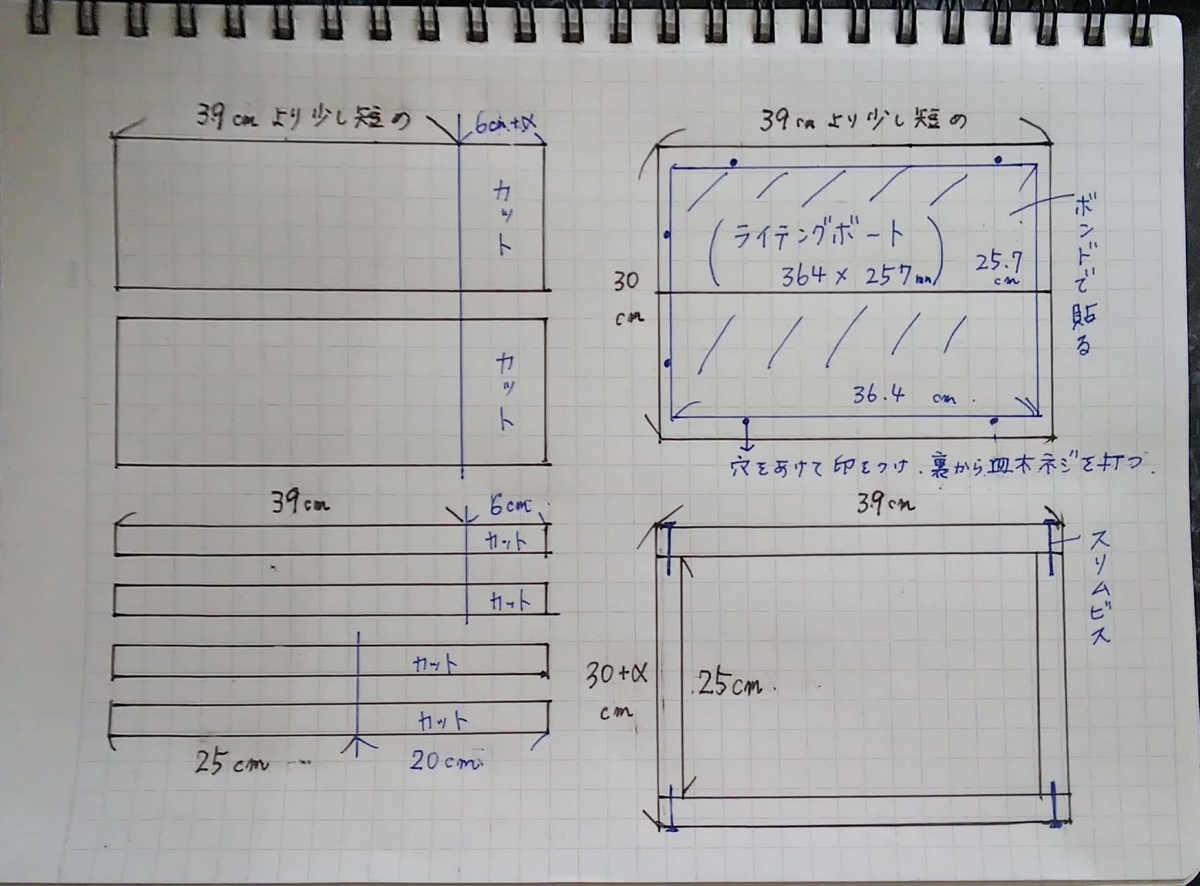 39cmより少し短め
6cm+α
カット
カット
39cm
6cm
カット
カット
カット
カット
25cm
20cm
39cmより少し短め
ライテングボート
364×257mm
25.7
cm
30
cm
36.4 cm
ボンドで貼る
穴をあけて印をつけ、裏から皿木ネジを打つ.
39cm
スリムビス
30+α
cm
25cm.